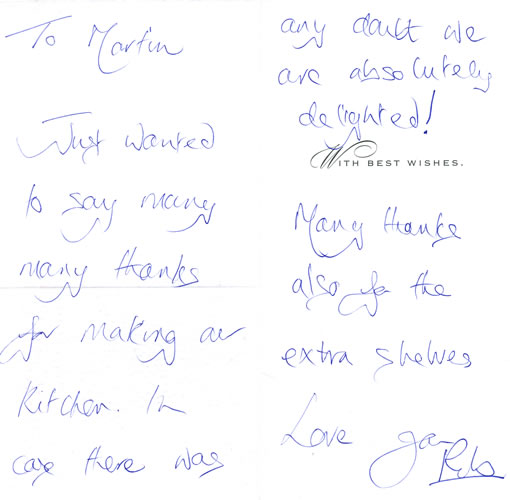 To Martin
Just wanted
to say many
many thanks
for making our
Kitchen. In
case there was
any doubt we
are absolutely
delighted!
WITH BEST WISHES.
Many thanks
also for the
extra shelves
Love Jan